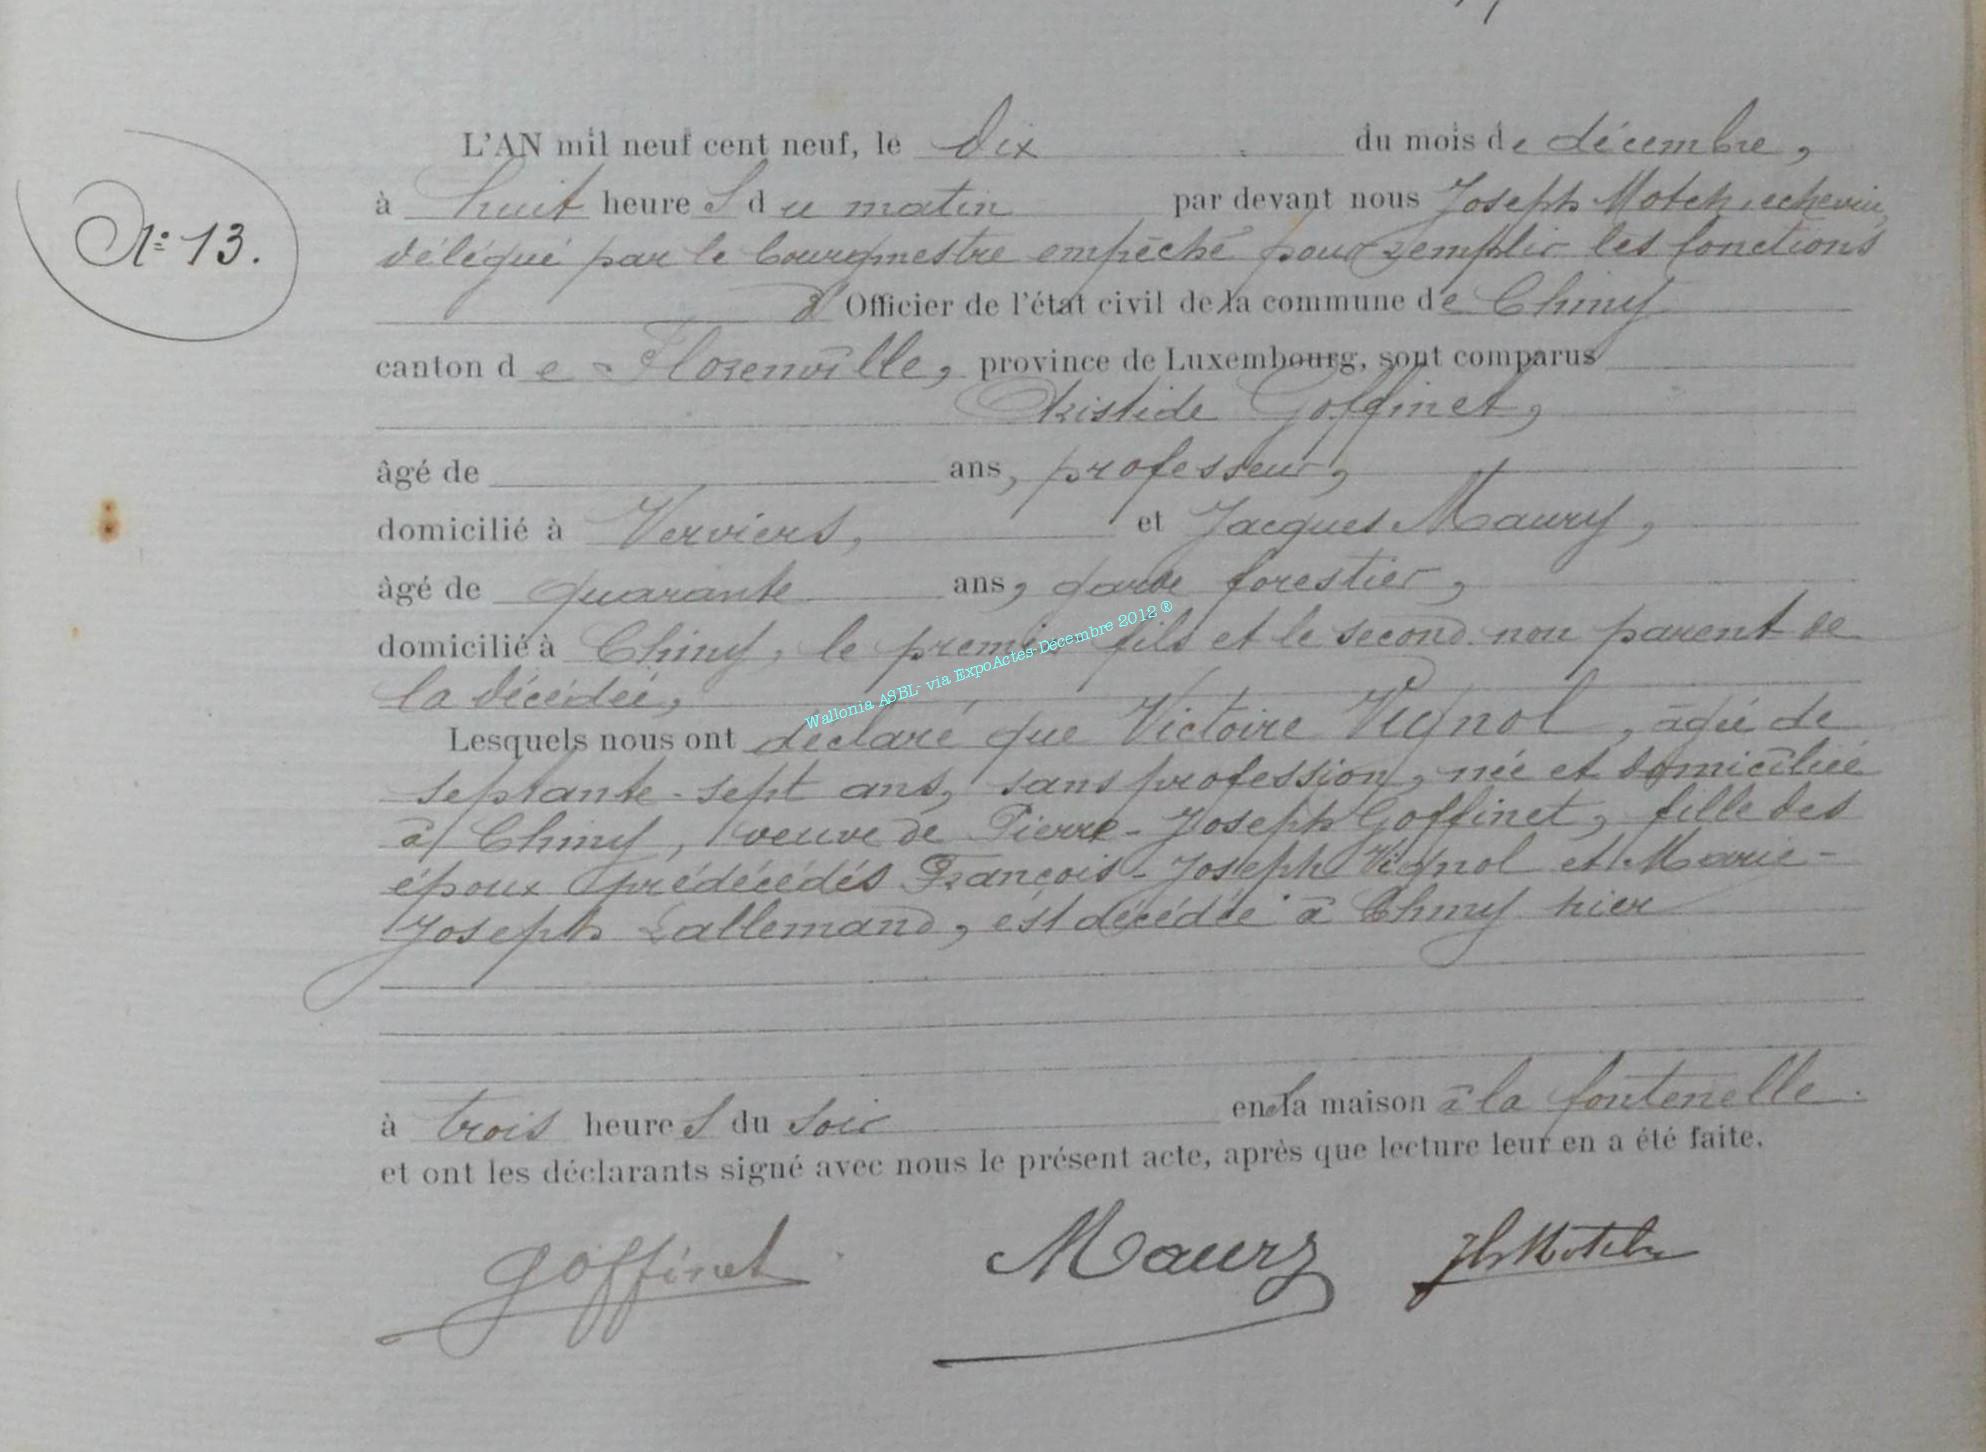 N° 13.
L'AN mil neuf cent neuf, le dix du mois de décembre,
à huit heures du matin par devant nous Joseph Motch, echevin,
délégué par le bourgmestre empêché pour remplir les fonctions
d'Officier de l'état civil de la commune de Chiny
canton de Florenville, province de Luxembourg, sont comparus
Aristide Goffinet,
âgé de ans, professeur,
domicilié à Verviers, et Jacques Maury,
âgé de quarante ans, garde forestier,
domicilié à Chiny, le premier fils et le second non parent de
la décédée,
Wallonia ASBL- via ExpoActes-Décembre 2012 ®
Lesquels nous ont déclaré que Victoire Vignol, âgée de
septante-sept ans, sans profession, née et domiciliée
à Chiny, veuve de Pierre-Joseph Goffinet, fille des
époux prédécédés François-Joseph Vignol et Marie-
Joseph Lallemand, est décédée à Chiny hier
à trois heures du soir en la maison à la fontenelle.
et ont les déclarants signé avec nous le présent acte, après que lecture leur en a été faite.
Goffinet Maury Jh Motch